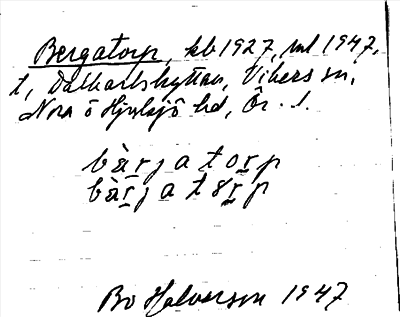 Bergatorp, kb 1927, ml 1947,
t, Dalkarlshyttan, Vikers sn,
Nora o Hjulsjö hd, Ör. l.
bàrjatorp
bàrjatɤrp
Bo Halvarson 1947